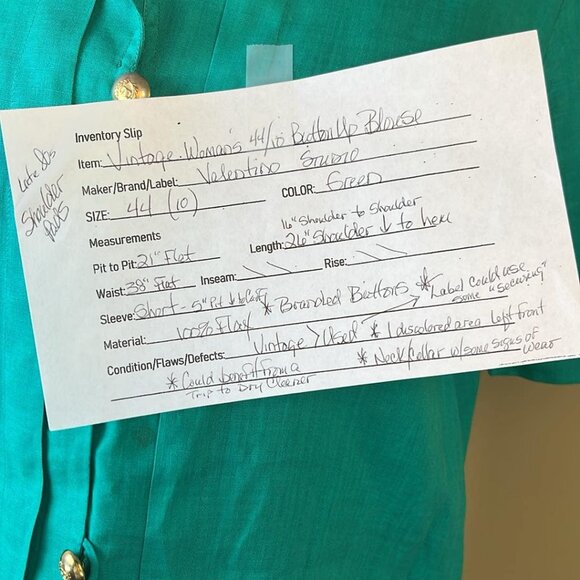 Late 80s
Shoulder
Pads
Inventory Slip
Item: Vintage Woman's 44/10 Button Up Blouse
Maker/Brand/Label: Valentino Studio
SIZE: 44 (10) COLOR: Green
Measurements 16" Shoulder to Shoulder
Pit to Pit: 21" Flat Length: 26" Shoulder ↓ to hem
Waist: 38" Flat Inseam: \ \ Rise: \ \
Sleeve: Short - 5" Pit ↓ to * Branded Buttons * Label could use
some "securing"
Material: 100% Flax
Condition/Flaws/Defects: Vintage > Used * 1 discolored area left front
* Could benefit from a * Neck/Collar w/ some signs of
Trip to Dry Cleaner wear